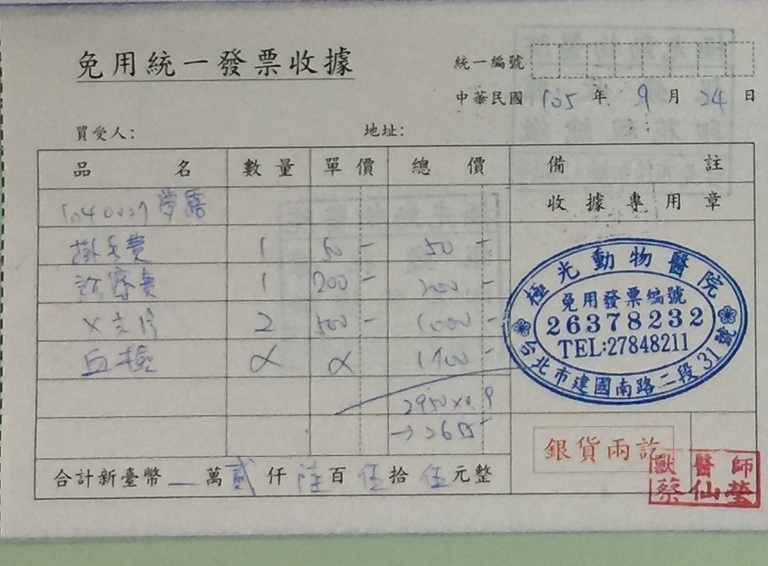 免用統一發票收據
統一編號
中華民國 105 年 9 月 24 日
買受人: 地址:
品名 數量 單價 總價 備註
收據專用章
1040027
掛號費 1 50- 50-
診療費 1 200- 200-
X光片 2 500- 1000-
血檢 α α 1700-
2950×0.9
→2655-
極光動物醫院
免用發票編號
26378232
TEL:27848211
台北市建國南路二段31號
銀貨兩訖
獸醫師
蔡仙瑩
合計新臺幣 — 萬 貳 仟 陸 百 伍 拾 伍 元整